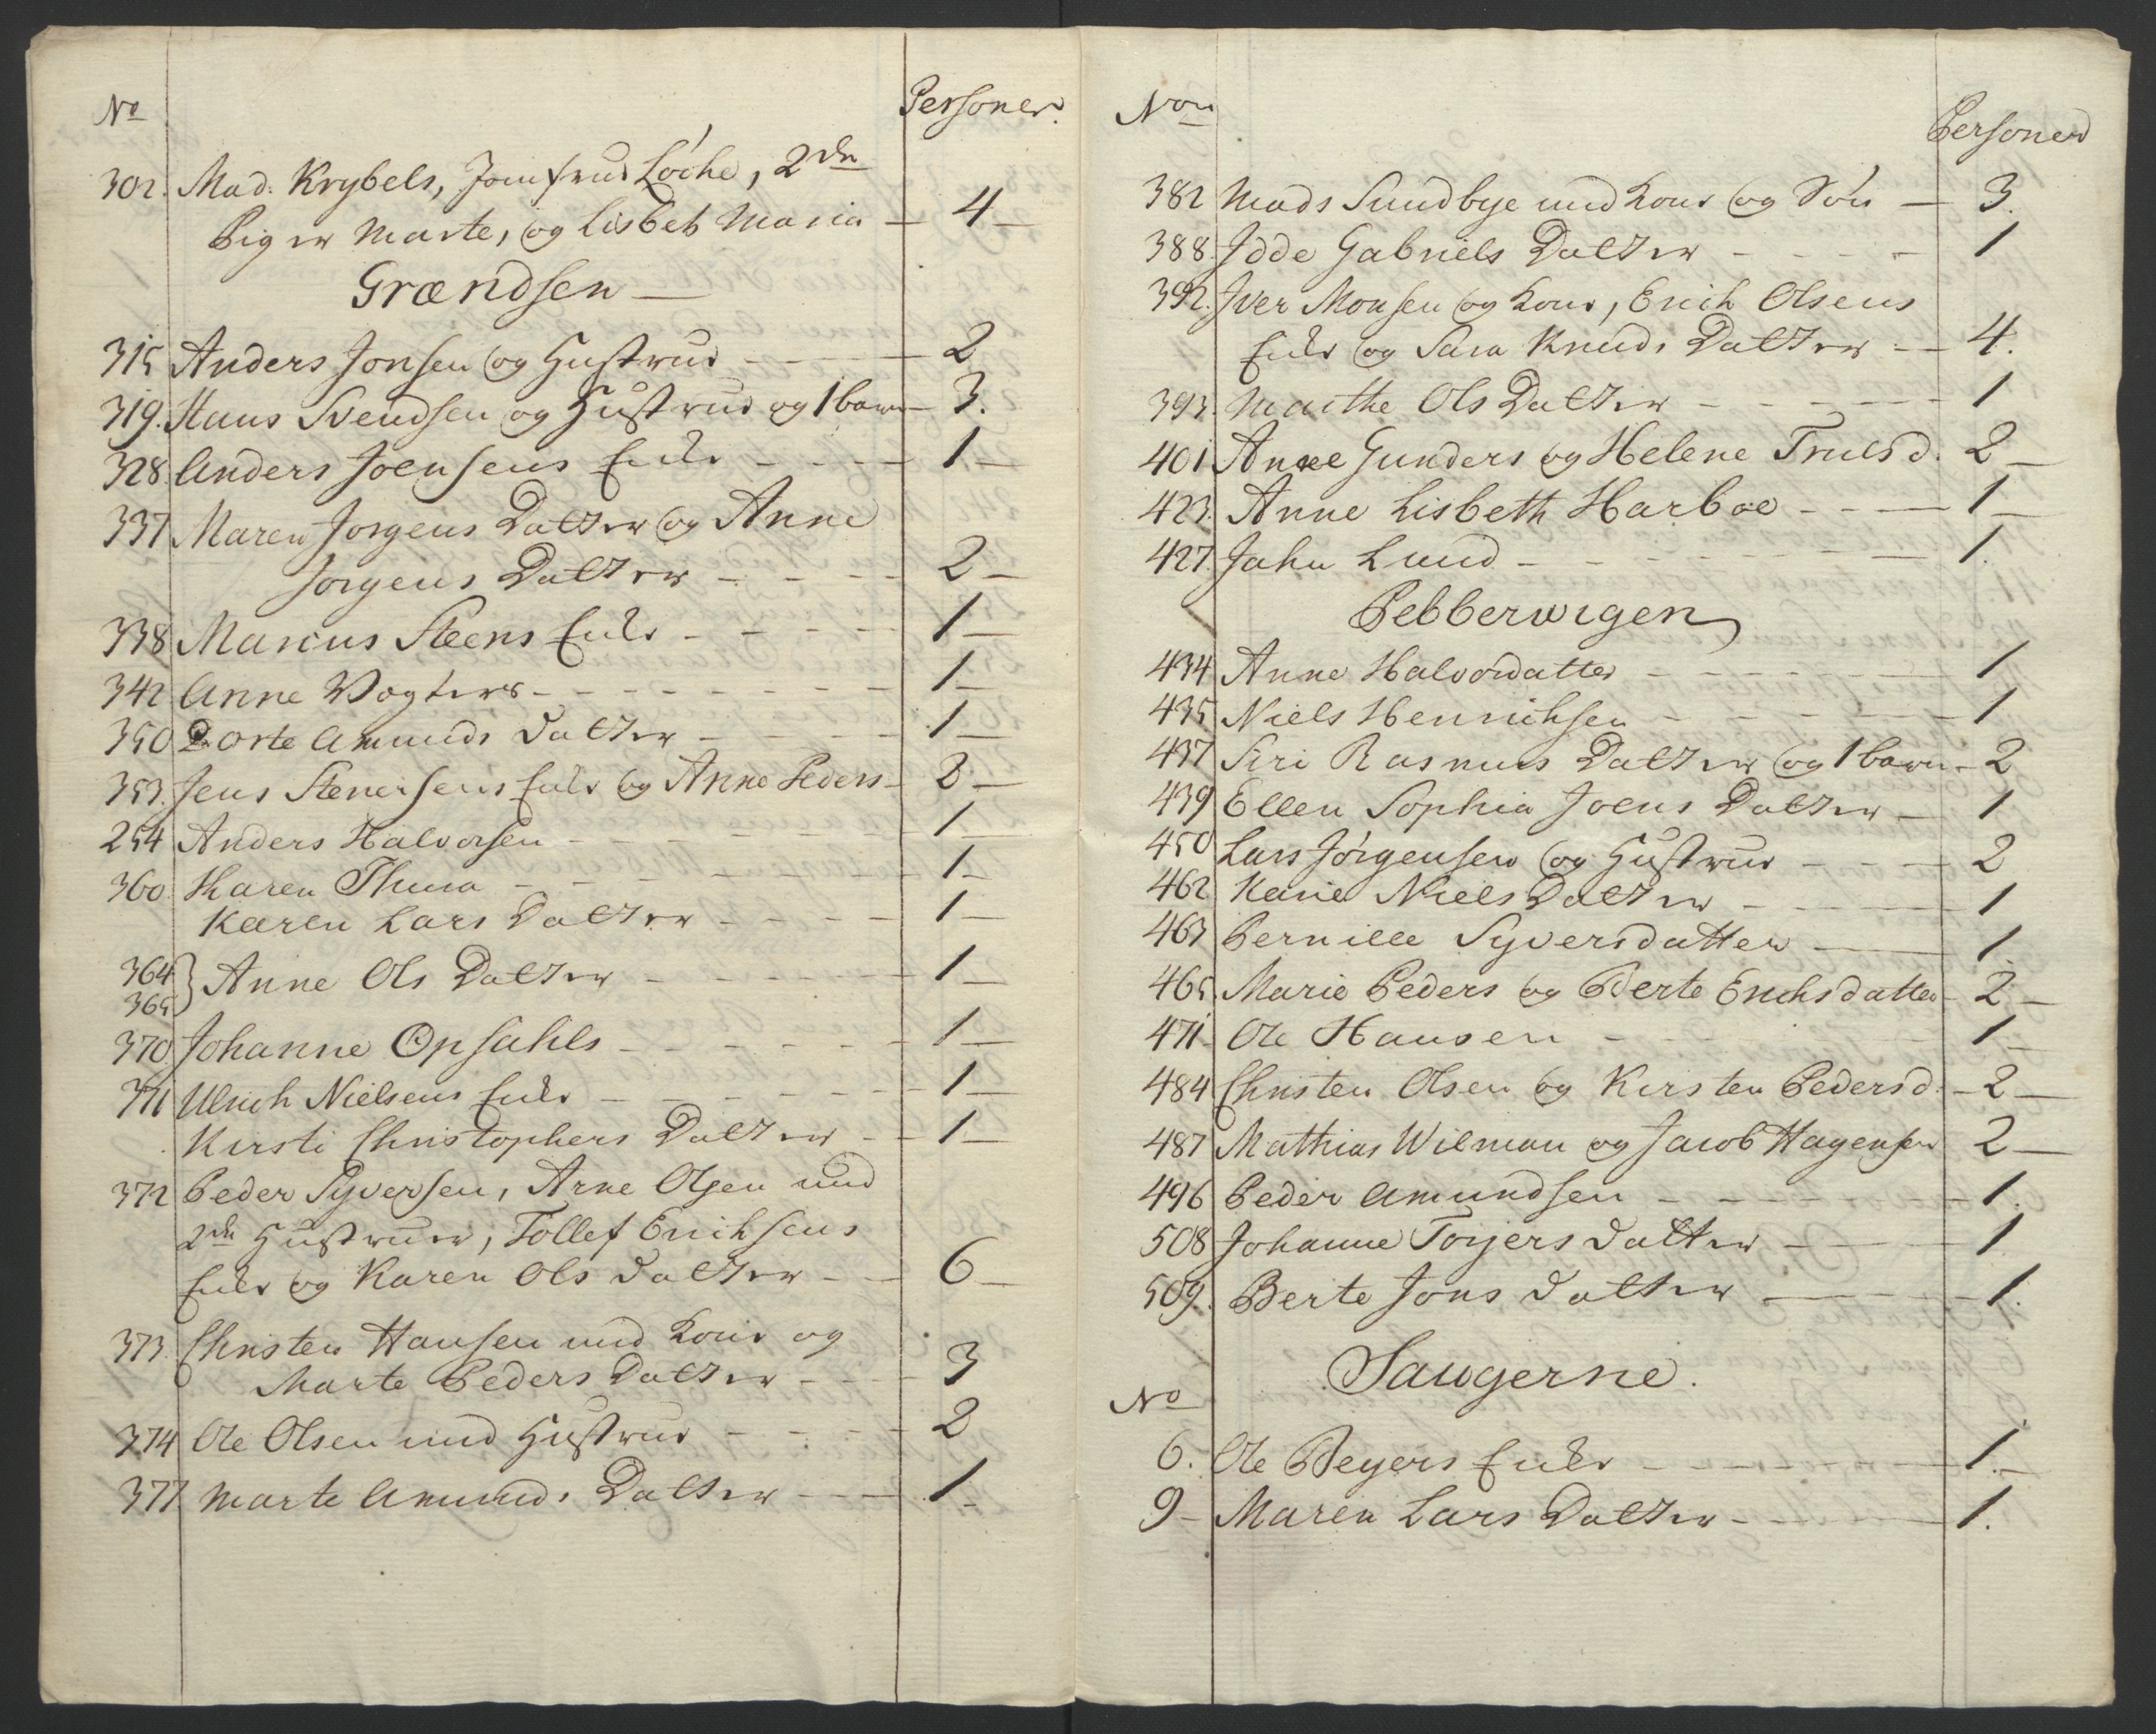 No Personer.
302. Mad. Krybels, Jomfrue Löche, 2de
Piger Marte, og Lisbet Maria — 4 —
Grændsen —
315 Anders Jonsen og Hustrue - - - - 2
319. Hans Svendsen og Hustrue og 1 barn — 3.
328 Anders Joensens Enke - - - - 1 —
337 Maren Jorgens Datter og Anne
Jorgens Datter - - - - 2 —
338 Marcus Steens Enke - - - - 1 —
342 Anne Vogters - - - - - - - 1 —
350 Dorte Amunds Datter - - - - 1 —
353. Jens Stenersens Enke og Anne Peders - 2 —
254 Anders Halvorsen - - - - 1 —
360 Karen Thura - - - - 1 —
Karen Lars Datter - - - - 1 —
364
365 } Anne Ols Datter - - - - 1 —
370 Johanne Opsahls - - - - 1 —
371 Ulrich Nielsens Enke - - - - 1 —
Kirsti Christophers Datter - - 1 —
372 Peder Syversen, Arne Olsen med
2de Hustruer, Tollef Erichsens
Enke og Karen Ols Datter - - 6 —
373 Christen Hansen med Kone og
Marte Peders Datter - - - 3
374 Ole Olsen med Hustrue - - - - 2
377 Marte Amunds Datter - - - 1 -
Non Personer
382 Mads Sundbye med Kone og Sön — 3.
388 Idde Gabriels Datter - - - - 1
392. Iver Monsen og Kone, Erich Olsens
Enke og Sara Knuds Datter - — 4.
393. Marthe Ols Datter - - - - 1
401 Anne Gunders og Helene Trulsd. 2 —
423. Anne Lisbeth Harboe - - - 1 —
427. Jahn Lund - - - - - - 1.
Pebbervigen
434 Anne Halvordatter - - - - 1
435 Niels Henrichsen - - - - 1
437 Siri Rasmus Datter og 1 barn - 2
439 Ellen Sophia Joens Datter - 1
450 Lars Jörgensen og Hustrue - - - 2
462 Karie Niels Datter - - - - 1
463 Pernille Syversdatter - — 1
465. Marie Peders og Berte Erichsdatter - 2 —
471 Ole Hansen - - - - 1 —
484 Christen Olsen og Kirsten Pedersd. - 2 —
487 Mathias Wilman og Jacob Hagensen 2 —
496 Peder Amundsen - - - - 1.
508 Johanne Torjers Datter - - - 1
509. Berte Jons Datter — - - 1.
Saugerne.
No
6. Ole Beyers Enke - - - - 1. —
9 - Maren Lars Datter - - - 1.